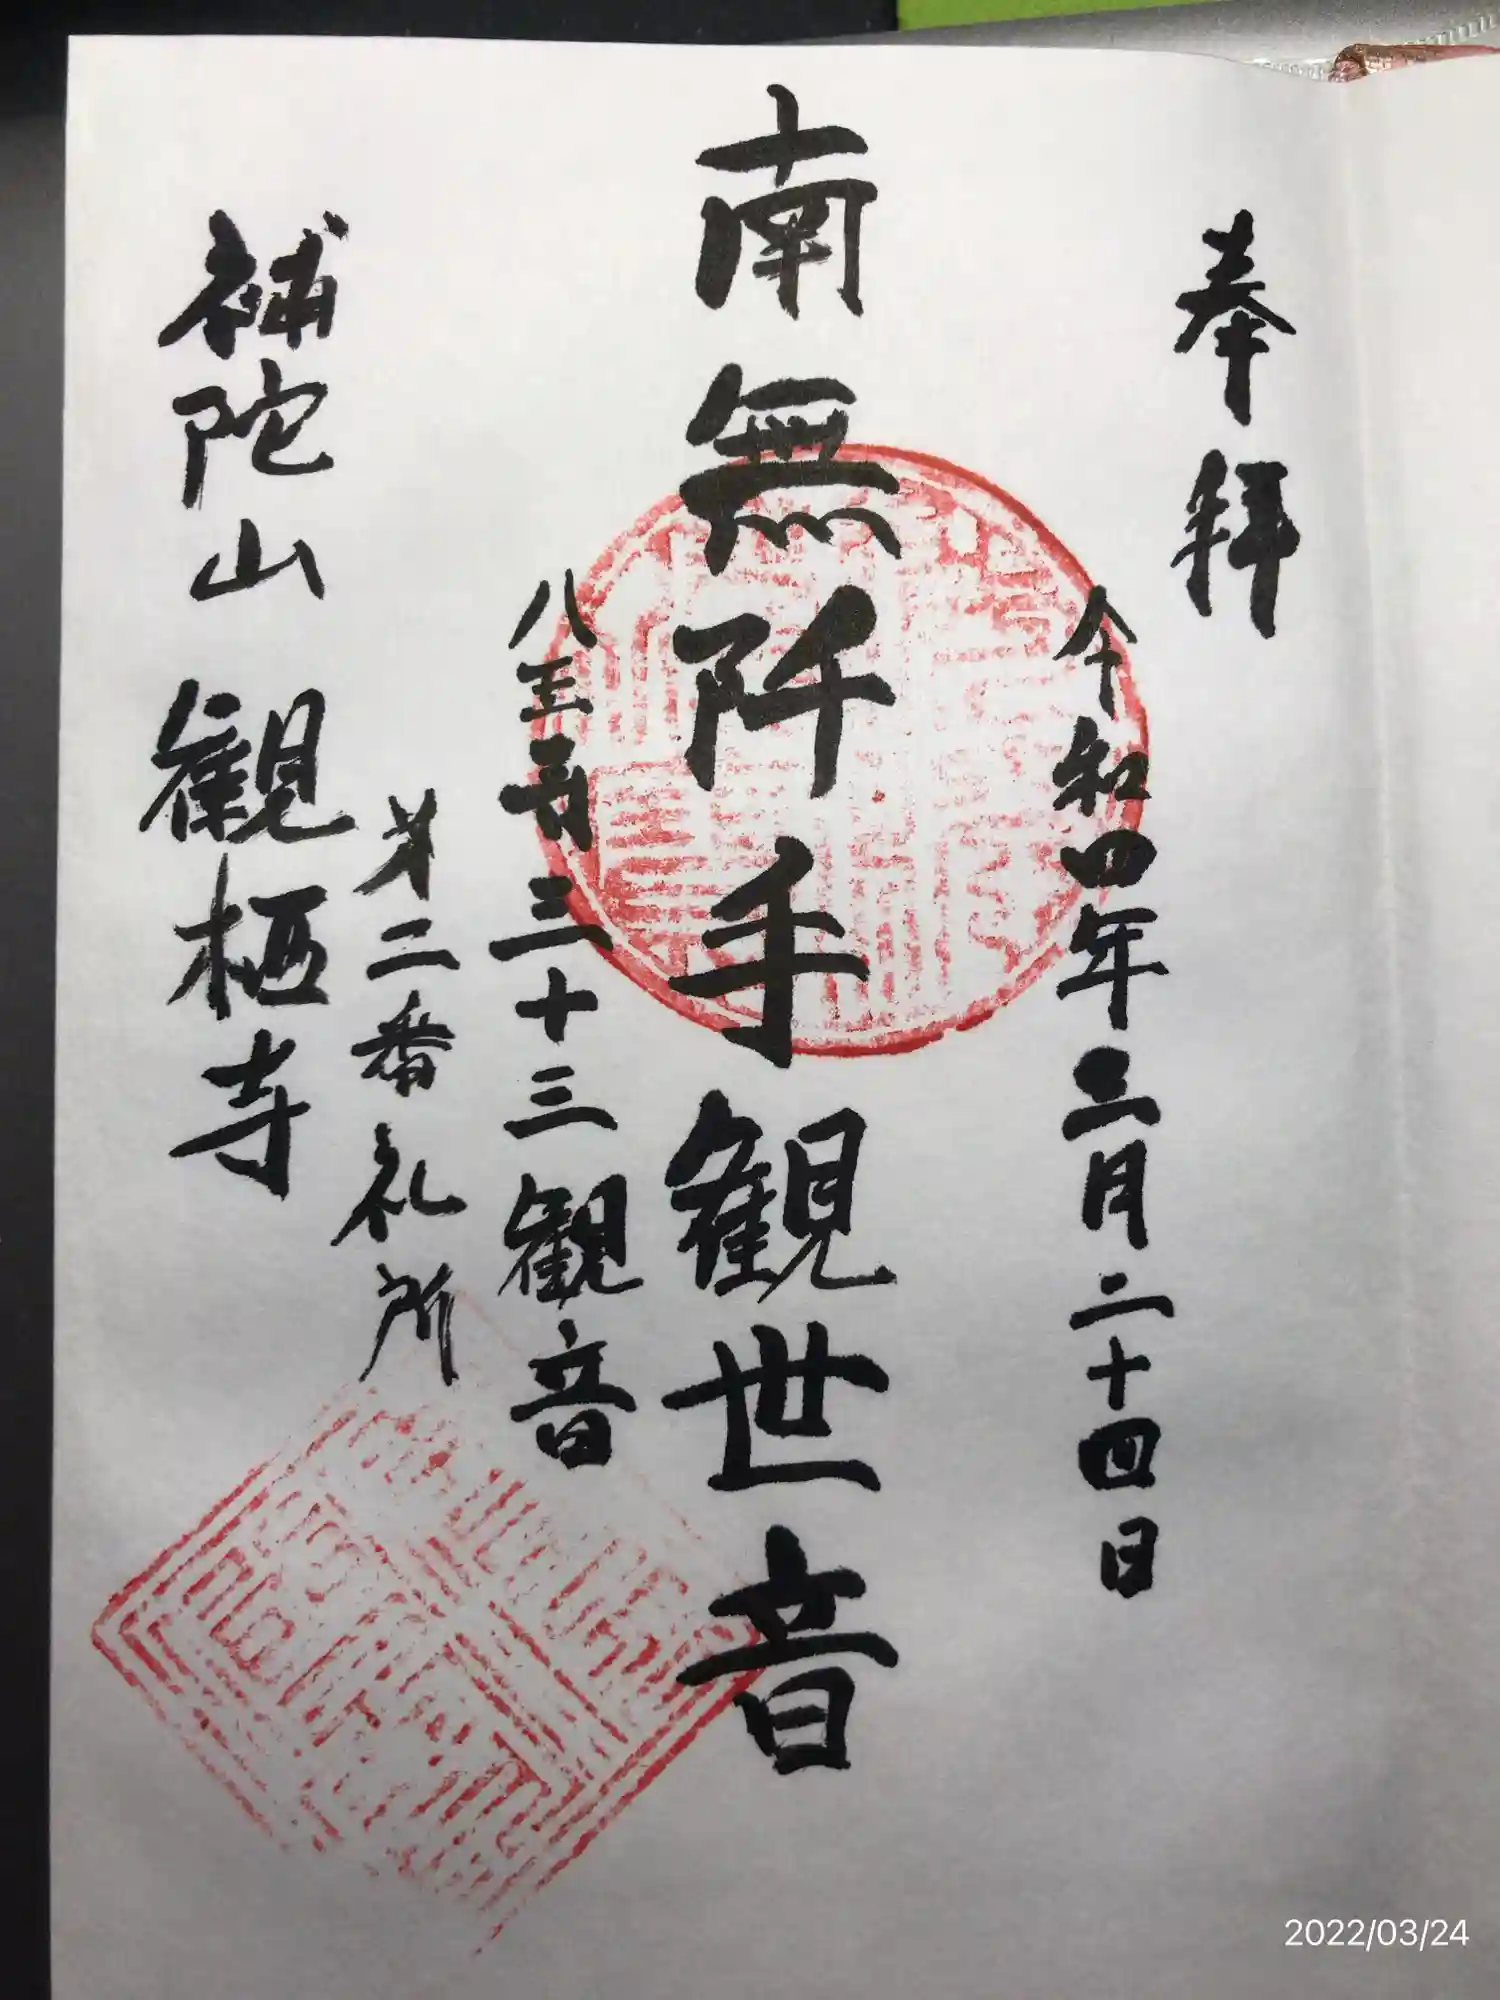 奉拝
令和四年三月二十四日
南無阡手観世音
八王 三十三観音
第二番礼所
補陀山 観栖寺
2022/03/24